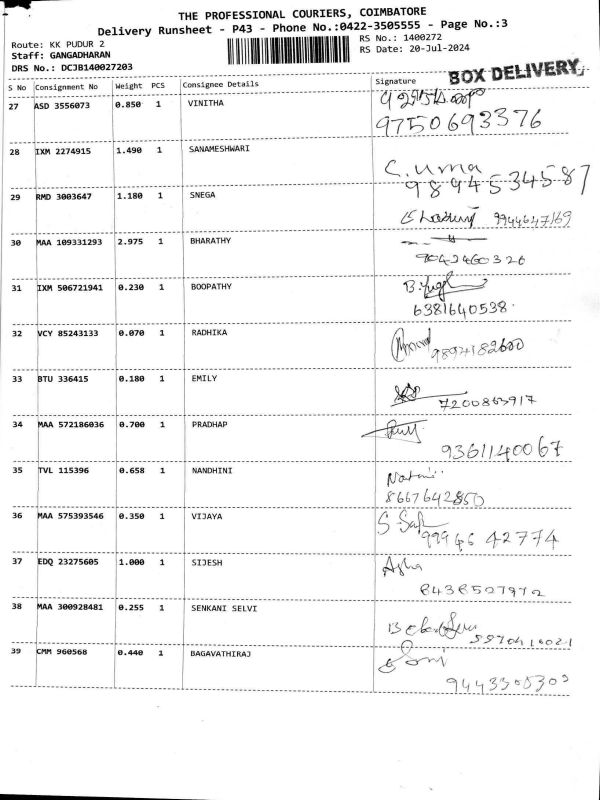 THE PROFESSIONAL COURIERS, COIMBATORE
Delivery Runsheet - P43 - Phone No.:0422-3505555 - Page No.:3
Route: KK PUDUR 2 RS No.: 1400272
Staff: GANGADHARAN RS Date: 20-Jul-2024
DRS No.: DCJB140027203 BOX DELIVERY
S No Consignment No Weight PCS Consignee Details Signature
27 ASD 3556073 0.850 1 VINITHA
9750693376
28 IXM 2274915 1.490 1 SANAMESHWARI
C. uma
9894534587
29 RMD 3003647 1.180 1 SNEGA
9944647169
30 MAA 109331293 2.975 1 BHARATHY
9042460320
31 IXM 506721941 0.230 1 BOOPATHY
6381640538
32 VCY 85243133 0.070 1 RADHIKA
9894182600
33 BTU 336415 0.180 1 EMILY
7200853917
34 MAA 572186036 0.700 1 PRADHAP
9361140067
35 TVL 115396 0.658 1 NANDHINI
8667642850
36 MAA 575393546 0.350 1 VIJAYA
99946 42774
37 EDQ 23275605 1.000 1 SIJESH
Asha
8438507972
38 MAA 300928481 0.255 1 SENKANI SELVI
39 CMM 960568 0.440 1 BAGAVATHIRAJ
9443305303